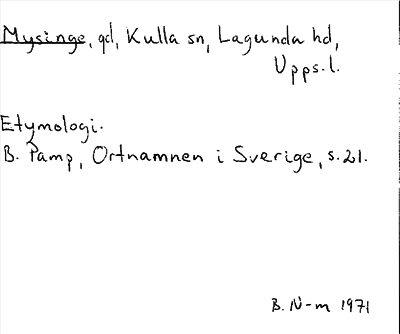 Mysinge, gd, Kulla sn, Lagunda hd,
Upps.l.
Etymologi.
B. Pamp, Ortnamnen i Sverige, s.21.
B. N-m 1971